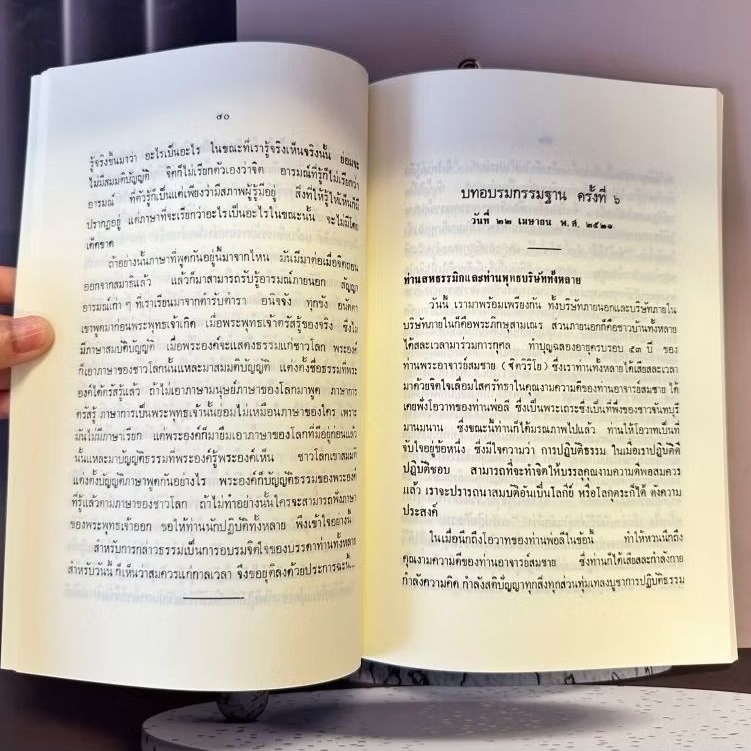 ๔๐
รู้จริงขึ้นมาว่า อะไรเป็นอะไร ในขณะที่เรารู้จริงเห็นจริงนั้น ย่อมจะ
ไม่มีสมมติบัญญัติ จิตก็ไม่เรียกตัวเองว่าจิต อารมณ์ที่รู้ก็ไม่เรียกว่า
อารมณ์ ที่ตัวรู้ก็เป็นแต่เพียงว่ามีสภาพผู้รู้มีอยู่ สิ่งที่ให้รู้ให้เห็นก็มี
ปรากฏอยู่ แต่ภาษาที่จะเรียกว่าอะไรเป็นอะไรในขณะนั้น จะไม่มีโดย
เด็ดขาด
ถ้าอย่างนั้นภาษาที่พูดกันอยู่นี้มาจากไหน มันมีมาต่อเมื่อจิตถอน
ออกจากสมาธิแล้ว แล้วก็มาสามารถรับรู้อารมณ์ภายนอก สัญญา
อารมณ์เก่า ๆ ที่เราเรียนมาจากตำรับตำรา อนิจจัง ทุกขัง อนัตตา
เขาพูดมาก่อนพระพุทธเจ้าเกิด เมื่อพระพุทธเจ้าตรัสรู้ของจริง ซึ่งไม่
มีภาษาสมบัติบัญญัติ เมื่อพระองค์จะแสดงธรรมแก่ชาวโลก พระองค์
ก็เอาภาษาของชาวโลกนั้นแหละมาสมมติบัญญัติ แต่งตั้งชื่อธรรมที่พระ
องค์ได้ตรัสรู้แล้ว ถ้าไม่เอาภาษามนุษย์ภาษาของโลกมาพูด ภาษาการ
ตรัสรู้ ภาษาการเป็นพระพุทธเจ้านั้นย่อมไม่เหมือนภาษาของใคร เพราะ
มันไม่มีภาษาเรียก แต่พระองค์ก็มายืมเอาภาษาของโลกที่มีอยู่ก่อนแล้ว
นั้นแหละมาบัญญัติธรรมที่พระองค์รู้พระองค์เห็น ชาวโลกเขาสมมติ
แต่งตั้งบัญญัติภาษาพูดกันอย่างไร พระองค์ก็บัญญัติธรรมของพระองค์
ที่รู้แล้วตามภาษาของชาวโลก ถ้าไม่ทำอย่างนั้นใครจะสามารถฟังภาษา
ของพระพุทธเจ้าออก ขอให้ท่านนักปฏิบัติทั้งหลาย พึงเข้าใจอย่างนี้
สำหรับการกล่าวธรรมเป็นการอบรมจิตใจของบรรดาท่านทั้งหลาย
สำหรับวันนี้ ก็เห็นว่าสมควรแก่กาลเวลา จึงขอยุติลงด้วยประการฉะนี้.
บทอบรมกรรมฐาน ครั้งที่ ๖
วันที่ ๒๒ เมษายน พ.ศ. ๒๕๒๑
ท่านสหธรรมิกและท่านพุทธบริษัททั้งหลาย
วันนี้ เรามาพร้อมเพรียงกัน ทั้งบริษัทภายนอกและบริษัทภายใน
บริษัทภายในก็คือพระภิกษุสามเณร ส่วนภายนอกก็คือชาวบ้านทั้งหลาย
ได้สละเวลามาร่วมการกุศล ทำบุญฉลองอายุครบรอบ ๕๓ ปี ของ
ท่านพระอาจารย์สมชาย (ฐิตวิริโย) ซึ่งเราท่านทั้งหลายได้เสียสละเวลา
มาด้วยจิตใจเลื่อมใสศรัทธาในคุณงามความดีของท่านอาจารย์สมชาย ได้
เคยฟังโอวาทของท่านพ่อลี ซึ่งเป็นพระเถระซึ่งเป็นที่พึ่งของชาวจันทบุรี
มานมนาน ซึ่งขณะนี้ท่านก็ได้มรณภาพไปแล้ว ท่านให้โอวาทเป็นที่
จับใจอยู่ข้อหนึ่ง ซึ่งมีใจความว่า การปฏิบัติธรรม ในเมื่อเราปฏิบัติดี
ปฏิบัติชอบ สามารถที่จะทำจิตให้บรรลุคุณงามความดีพอสมควร
แล้ว เราจะปรารถนาสมบัติอันเป็นโลกีย์ หรือโลกุตระก็ได้ ดังความ
ประสงค์
ในเมื่อนึกถึงโอวาทของท่านพ่อลีในข้อนี้ ทำให้หวนนึกถึง
คุณงามความดีของท่านอาจารย์สมชาย ซึ่งท่านก็ได้เสียสละกำลังกาย
กำลังความคิด กำลังสติปัญญาทุกสิ่งทุกส่วนทุ่มเทลงบูชาการปฏิบัติธรรม